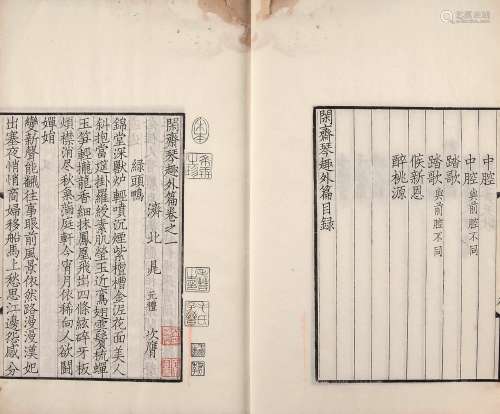 中腔
中腔與前腔不同
踏歌
踏歌與前腔不同
候新恩
醉桃源
閑齋琴趣外篇目録
閑齋琴趣外篇卷之一
濟北晁元禮次膺
緑頭鴨
錦堂深獸炉輕噴沉煙紫檀槽金泥花面美人
斜抱當筵掛羅綬素肌瑩玉近鸞翅雲鬢梳蟬
玉筍輕攏龍香細抹鳳凰飛出四條絃碎牙板
煩襟消尽秋氣滿庭軒今宵月依稀向人欲鬭
嬋娟
變新聲能翻往事眼前風景依然路漫漫漢妃
出塞夜悄悄商婦移船馬上愁思江邊怨感分